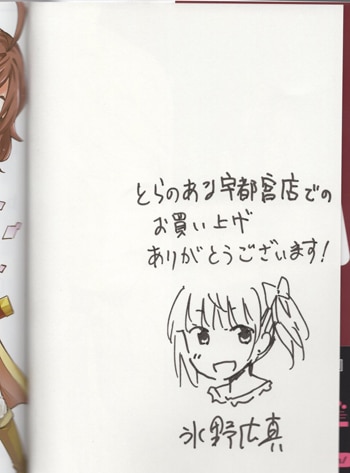 とらのある宇都宮店での
お買い上げ
ありがとうございます!
氷野広真